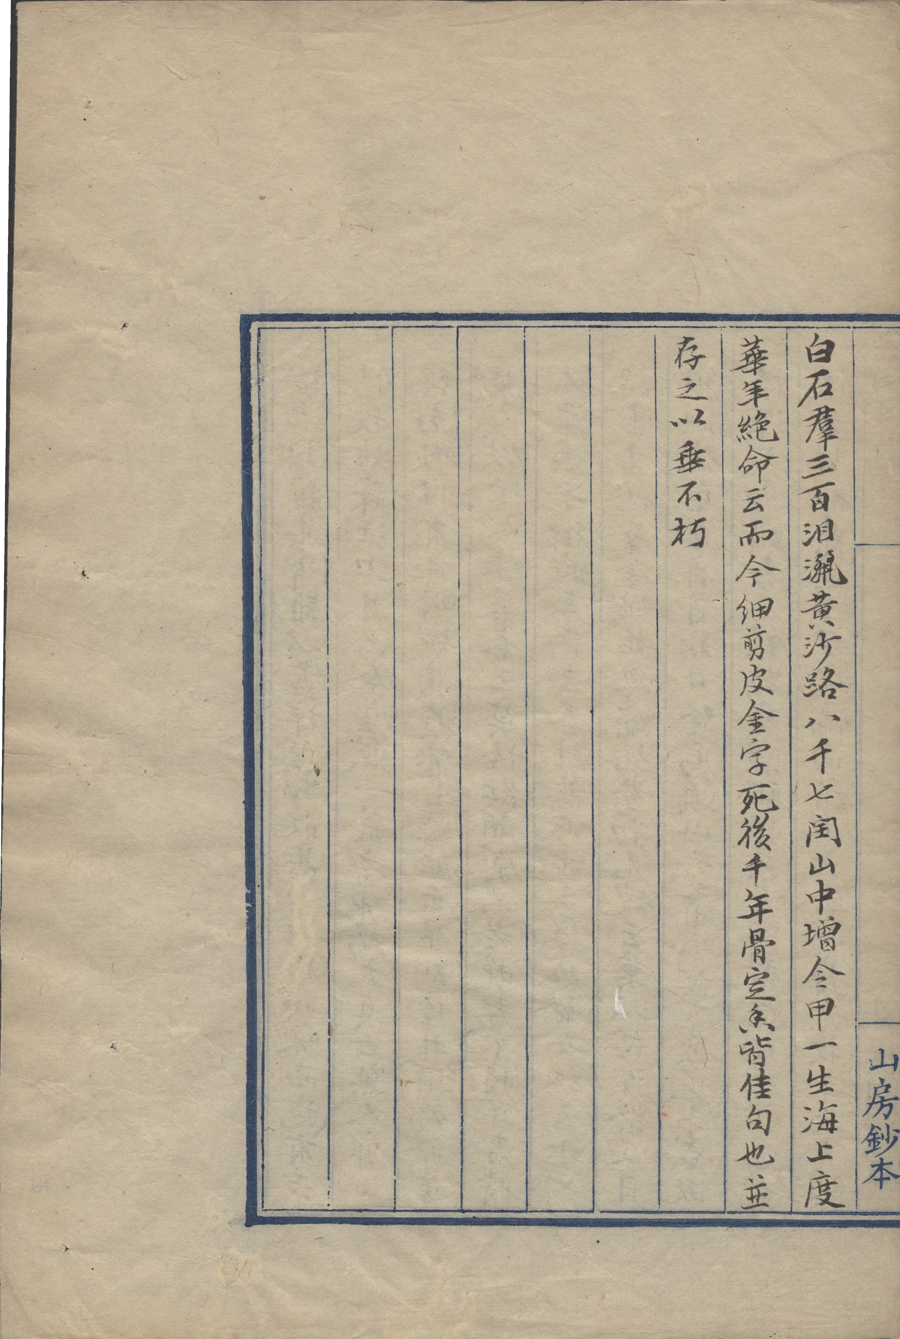 山房鈔本
白石羣三百泪灑黄沙路八千七閏山中增令甲一生海上度
華年絶命云而今細剪皮金字死後千年骨定香皆佳句也並
存之以垂不朽